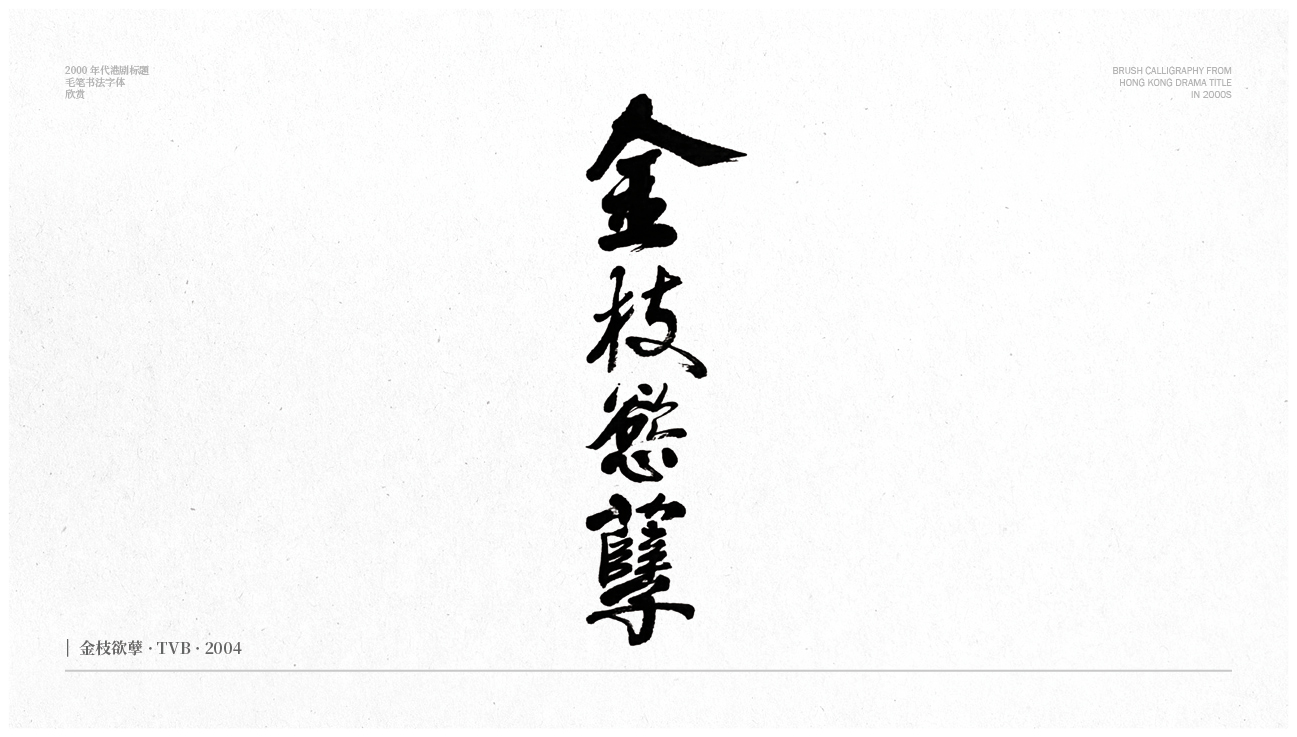 2000 年代港剧标题
毛笔书法字体
欣赏
BRUSH CALLIGRAPHY FROM
HONG KONG DRAMA TITLE
IN 2000S
金枝慾孽
金枝欲孽 · TVB · 2004